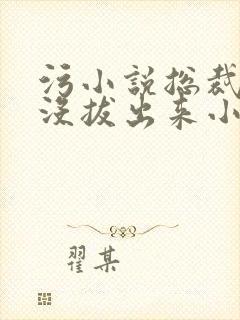 污小说总裁
没拔出来小
翟某